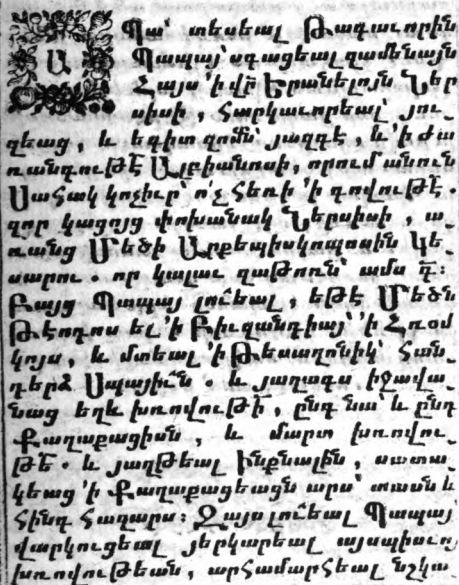 ԱՊա՝ տեսեալ Թագաւորին
Պապայ՝ սգացեալ զամենայն
Հայս ՚ի վր̃ Երանելոյն Ներ֊
սիսի, Հարկաւորեալ՝ յու֊
զեաց, և եգիտ զոմն՝ յազգէ, և ՚ի ժա
ռանգութէ̃ Աղբիանոսի, որում անուն
Սահակ կոչիւր՝ ո՛չ հեռի ՚ի գովութէ̃.
զոր կացոյց փոխանակ Ներսիսի, ա֊
ռանց Մեծի Արքեպիսկոպոսին Կե֊
սարու. որ կալաւ զաթոռն՝ ամս դ̃:
Բայց Պապայ լու̃եալ, եթէ Մեծն
Թէոդոս ել ՚ի Բիւզանդիայ՝ ՚ի Հռօմ
կոյս, և մտեալ ՚ի Թեսաղոնիկ՝ հան֊
դերձ Սպայիւ̃ն. և յաղագս իջավա֊
նաց եղև խռովութի̃, ընդ նա և ընդ
Քաղաքացիսն, և մարտ խռովու֊
թե̃. և յաղթեալ Ինքնակալին, սատա֊
կեաց ՚ի Քաղաքացեացն արս՝ տասն և
հինգ հազարս: Զայս լու̃եալ Պապայ
վարկուցեալ յերկարեալ այսպիսւոյ
խռովութեան, արհամարհեալ նշկա֊